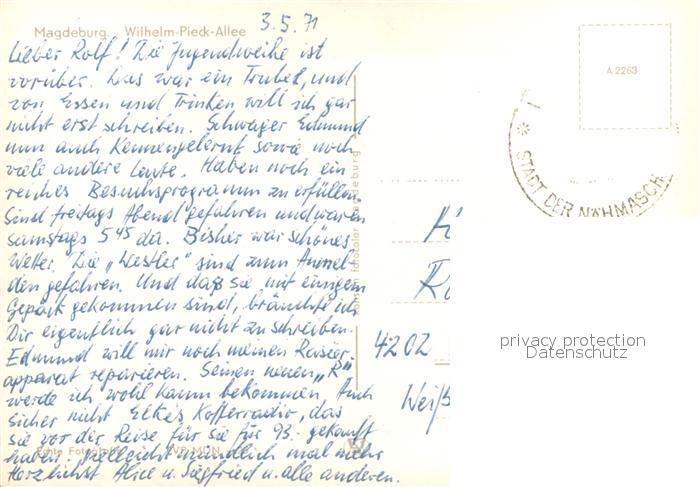 Magdeburg. Wilhelm-Pieck-Allee
3.5.71
Lieber Rolf! Die Jugendweihe ist
vorüber. Das war ein Trubel, und
von Essen und Trinken will ich gar
nicht erst schreiben. Schwager Edmund
nun auch kennengelernt sowie noch
viele andere Leute. Haben noch ein
reiches Besuchsprogramm zu erfüllen.
Sind freitags Abend gefahren und waren
samstags 5 45 da. Bisher war schönes
Wetter. Die „Westler" sind zum Anmel-
den gefahren. Und daß sie mit einigem
Gepäck gekommen sind, bräuchte ich
Dir eigentlich gar nicht zu schreiben.
Edmund will mir noch meinen Rasier-
apparat reparieren. Seinen neuen
werde ich wohl kaum bekommen. Auch
sicher nicht Elkes Kofferradio, das
sie vor der Reise für sie für 93.- gekauft
haben. Vielleicht mündlich mal mehr
Herzlichst Alice u. Siegfried u. alle anderen.
Echte Fotografie
fotocolor Magdeburg
A 2263
STADT DER NÄHMASCH
4202
Weiß
privacy protection
Datenschutz